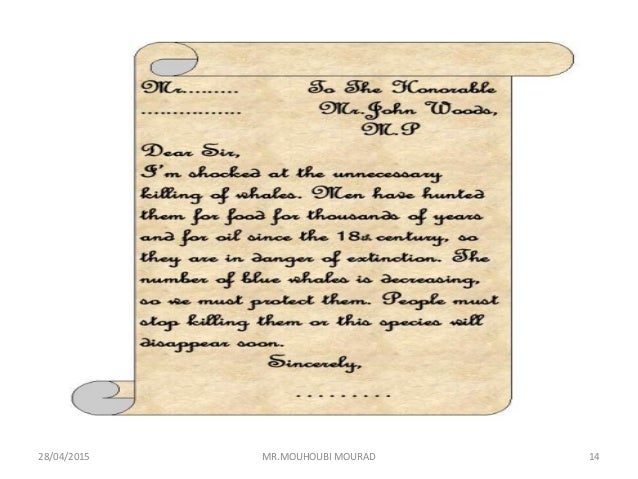 Mr.........          To The Honorable
................          Mr.John Woods,
M.P
Dear Sir,
I'm shocked at the unnecessary
killing of whales. Men have hunted
them for food for thousands of years
and for oil since the 18th century, so
they are in danger of extinction. The
number of blue whales is decreasing,
so we must protect them. People must
stop killing them or this species will
disappear soon.
Sincerely,
.........
28/04/2015          MR.MOUHOUBI MOURAD          14